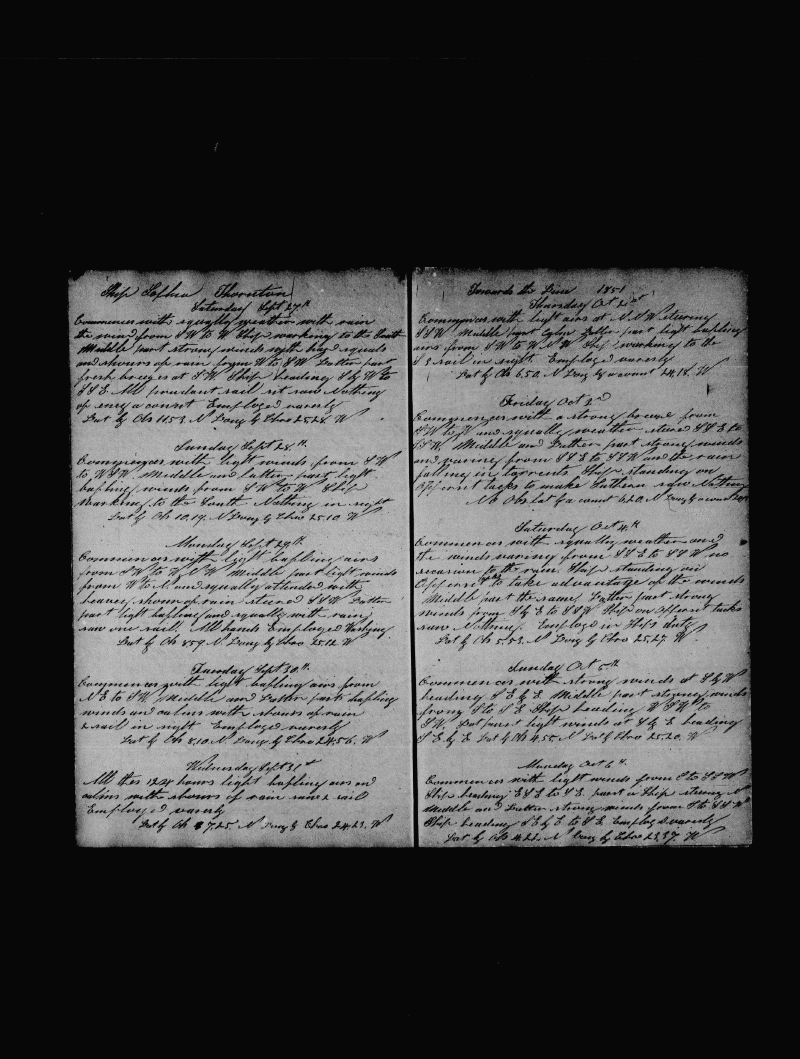 Ship Sophia Thornton
Saturday Sept 27th
Commences with squally weather with rain
the wind from SW to W Ship working to the South
Middle part strong winds with hard squals
and showrs of rain from W to SW Latter part
fresh breezes at SW Ship heading S by W to
SSE All prudant sail sit saw Nothing
of eny a count Employed varsly
Lat by Obs 11.53 N Long by Chro 25.28 W
Sunday Sept 28th
Commences with light winds from SW
to WSW Middle and latter part light
bafling winds from SW to W Ship
working to the South Nothing in sight
Lat by Obs 10.19 N Long by Chro 25.10 W
Monday Sept 29th
Commences with light bafling airs
from SW to W Middle part light winds
from W to and squally attended with
heavey showrs of rain steered SSW Latter
part light bafling and squally with rain
saw one sail All hands Employed
Lat by Obs N Long by Chro 25.12 W
Tuesday Sept 30th
Commences with light bafling airs from
NE to SW Middle and Latter parts bafling
winds and calms with showrs of rain
2 sail in sight Employed varsly
Lat by Obs 8.10 N Long by Chro 24.56 W
Wednesday Sept 31st
All thes 24 hours light bafling airs and
calms with showrs of rain saw 2 sail
Employed varsly
Lat by Ob 7.25 N Long by Chro 24.23 W
Towards the Line 1851
Thursday Oct
Commences with light airs at steering
SSW Middle part Latter part light bafling
airs from SW to Ship working to the
S sail in sight Employed varsly
Lat by Obs 6.50 N Long by a count 24.18 W
Friday Oct 2nd
Commences with a strong breeze from
and squally weather steerd SSE to
Middle and Latter part strong winds
and varing from SSE to SSW and the rain
falling in torrents Ship standing on
Oppisit tacks to make Southern saw Nothing
No Obs Lat by a count 6.20 N Long by a count
Saturday Oct 4th
Commences with squally weather and
the winds varing from SSE to SSW no
to the rain Ship standing on
Oppisit to take advantage of the winds
Middle part the same Latter part strong
winds from S by E to SSW Ship on Oppisit tacks
saw Nothing Employd in Ships duty
Lat by Obs 5.53 N Long by Chro 25.27 W
Sunday Oct 5th
Commences with strong winds at S by W
heading SE by E Middle part strong winds
from S to SE Ship heading WSW to
SW Lat part light winds at S by E heading
SE by E Lat by Obs 4.55 N Long by Chro 25.20 W
Monday Oct 6th
Commences with light winds from S to SSW
Ship heading ESE to SE
Middle and Latter strong winds from S to SSW
Ship heading SE by E to SE Employed varsly
Lat by Obs 4.22 N Long by Chro 23.37 W